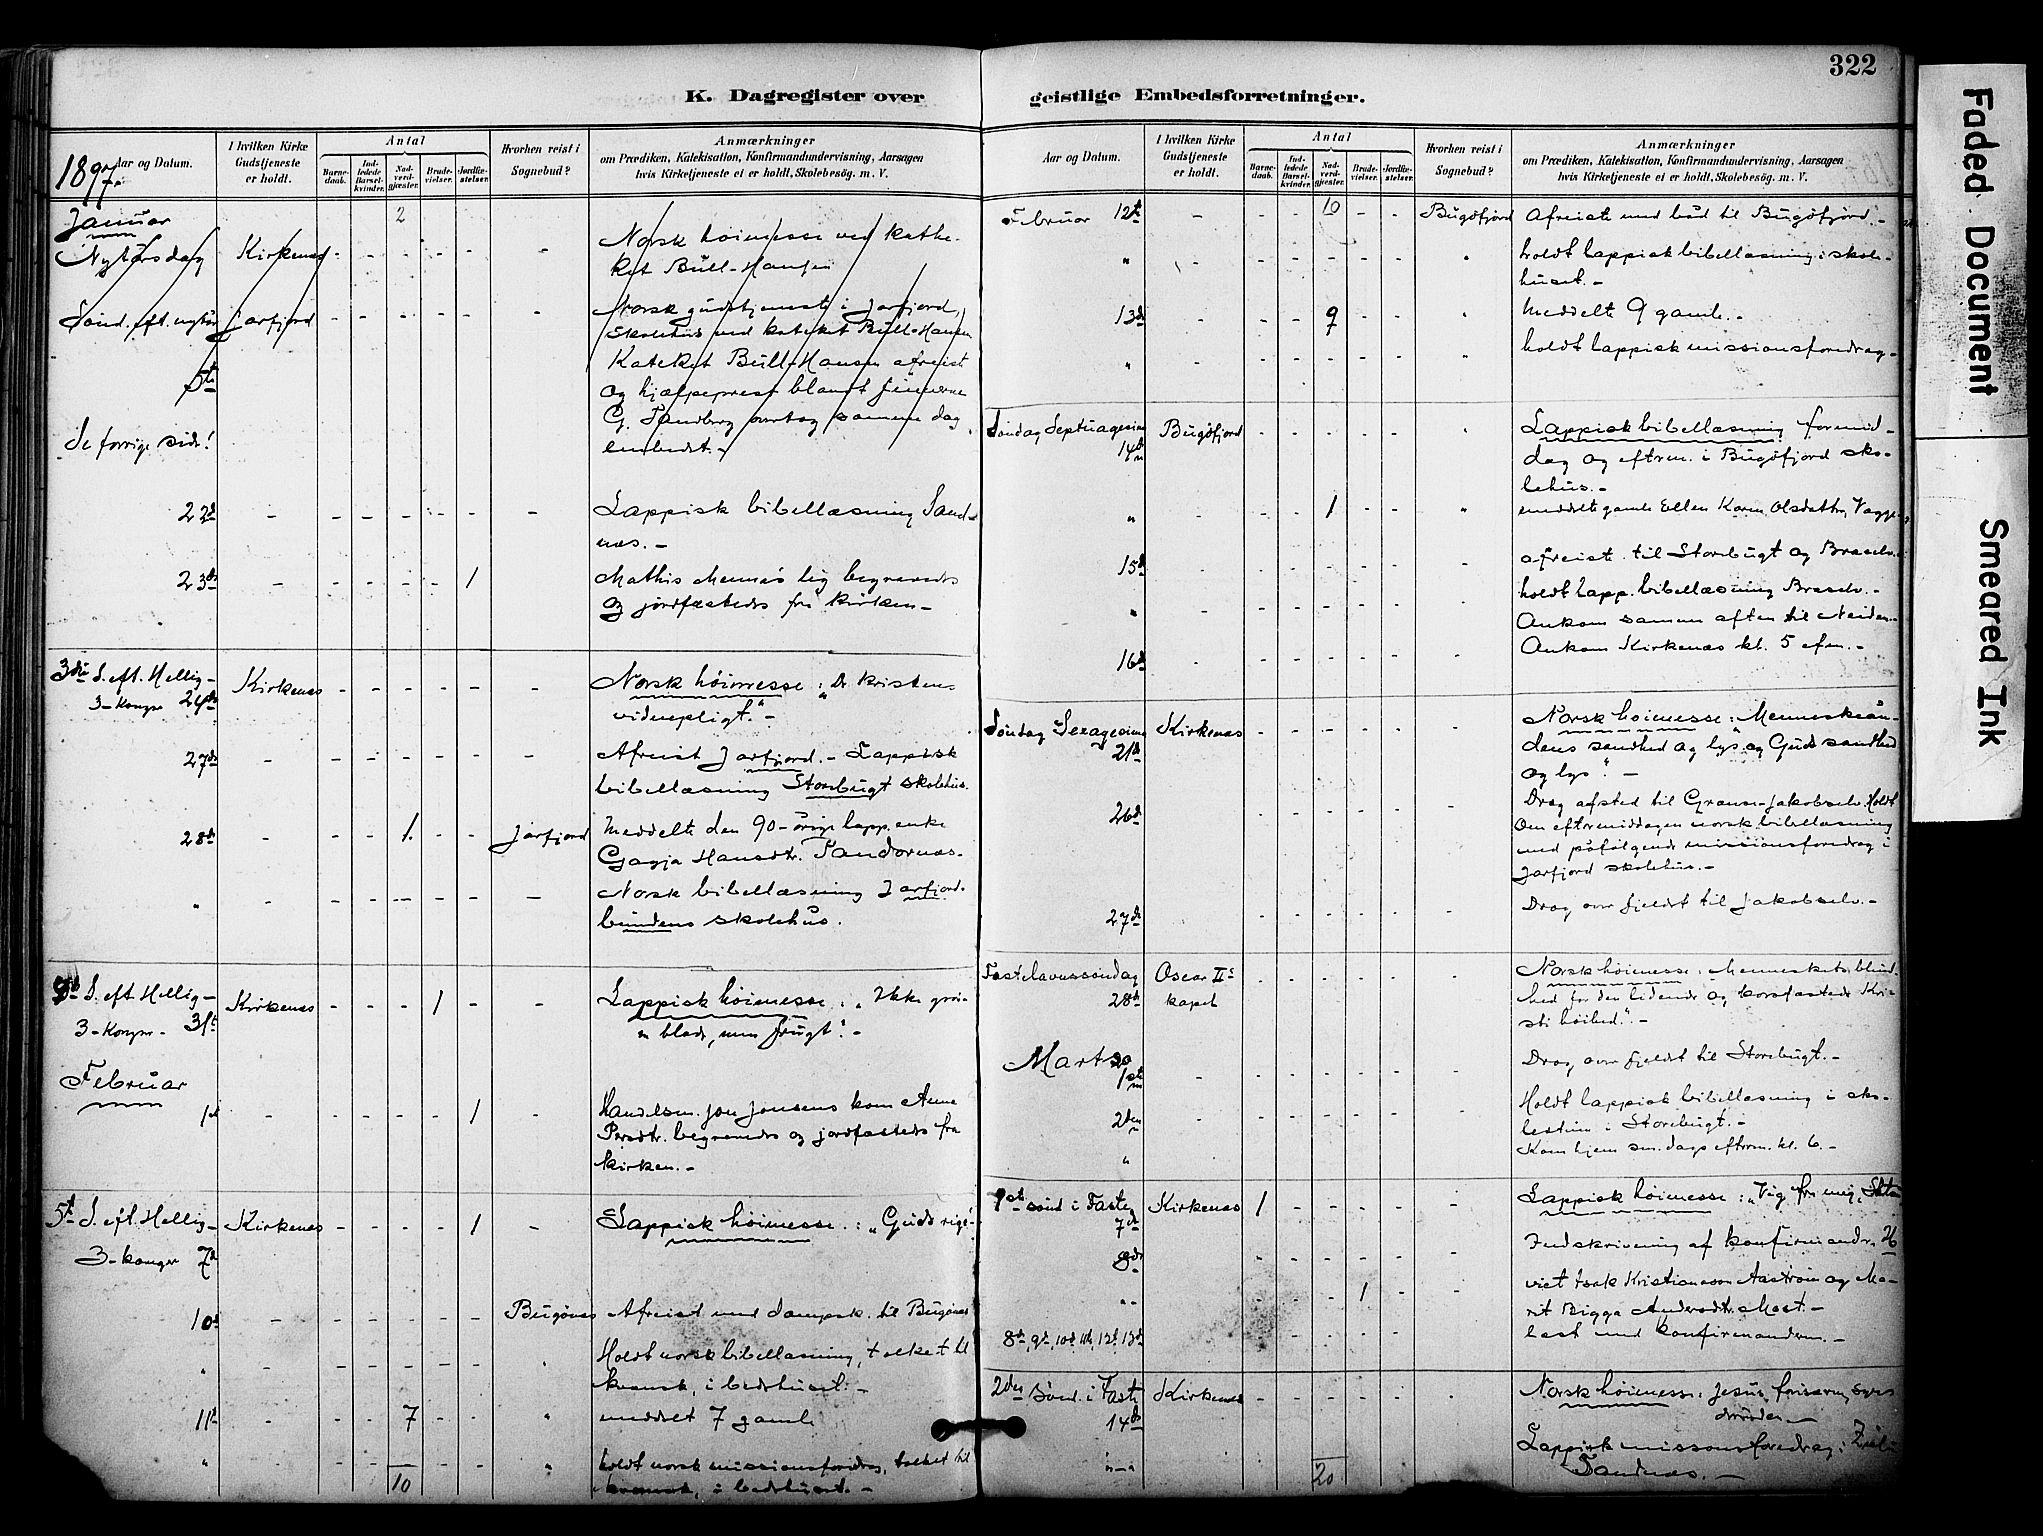 322
K. Dagregister over
geistlige Embedsforretninger.
Faded Document
Smeared Ink
1897.
Aar og Datum.
I hvilken Kirke Gudstjeneste er holdt.
Antal
Barne-daab.
Ind-ledede Barsel-kvinder.
Nad-verd-gjæster.
Brude-vielser.
Jordfæ-stelser.
Hvorhen reist i Sognebud?
Anmærkninger
om Prædiken, Katekisation, Konfirmandundervisning, Aarsagen
hvis Kirketjeneste ei er holdt, Skolebesøg. m. V.
Januar 2
Nytårsdag Kirkenes - - - - - - - Norsk höimesse ved kathe-
ket Bull-Hansen
Sönd. eft. nytår Jarfjord - - - - - - Norsk gudstjeneste i Jarfjord,
Skolehus ved kateket Bull-Hansen
Kateket Bull-Hansen afreist
5te og hjælpeprest blandt finnerne
G. Sandberg overtog samme dag
Se forrige side! embedet. -
22d - - - - - - - Lappisk bibellæsning Sand-
næs. -
23de - - - - - 1 Mathis lig begravedes
og jordfæstedes fra kirken -
3die S. eft. Hellig- Kirkenæs - - - - - - Norsk höimesse: "De kristens
3-Konger 24de vidnepligt." -
27de - - - - - - - Afreist Jarfjord. - Lappisk
bibellæsning Storebugt skolehus.
28de - - - 1. - - Jarfjord Meddelte den 90-årige lapp. enke
Gagja Hansdtr. Tandornæs.
" - - - - - - - Norsk bibellæsning Jarfjord-
bundens skolehus.
S. eft. Hellig- Kirkenæs - - - 1 - - Lappisk höimesse: "Ikke grö-
3-Konger - 31te n blade, men frugt." -
Februar
1st - - - - - 1 - Handelsm. Jon Jonsens kone Anne
Persdtr. begravedes og jordfæstedes fra
kirken. -
5t S. eft. Hellig- Kirkenæs - - - - 1 - Lappisk höimesse: "Guds rige."
3-konger 7d
10d - - - - - - Bugönæs Afreist med dampsk. til Bugönæs
" - - - - - - " Holdt norsk bibellæsning, tolket til
kvensk, i bedehuset. -
11d - - - 7 - - " meddelt 7 gamle
" - - - - - - " holdt norsk missionsforedrag, tolket til
10 kvensk, i bedehuset. -
Aar og Datum.
I hvilken Kirke Gudstjeneste er holdt.
Antal
Barne-daab.
Ind-ledede Barsel-kvinder.
Nad-verd-gjæster.
Brude-vielser.
Jordfæ-stelser.
Hvorhen reist i Sognebud?
Anmærkninger
om Prædiken, Katekisation, Konfirmandundervisning, Aarsagen
hvis Kirketjeneste ei er holdt, Skolebesøg. m. V.
Februar 12te - - - 10 - - Bugöfjord Afreiste med båd til Bugöfjord. -
" - - - - - - " holdt lappisk bibellæsning i skole-
huset. -
13de - - - 9 - - " Meddelte 9 gamle. -
" - - - - - " holdt lappisk missionsforedrag -
Söndag Septuagesima Bugöfjord - - - - - " Lappisk bibellæsning formid-
14de dag og eftrm. i Bugöfjord sko-
lehus. -
" - - 1 - - " meddelte gamle Ellen Karen Olsdatter,
15d - - - - - - - afreiste til Storebugt og Braselv.
" - - - - - - - holdt lapp. bibellæsning Braselv. -
Ankom samme aften til Neiden. -
16d - - - - - - - Ankom Kirkenæs kl. 5 efm. -
Söndag Sexagesima Kirkenæs - - - - - - Norsk höimesse: "Menneskeån-
21de dens sandhed og lys og Guds sandhed
og lys." -
26de - - - - - - Drog afsted til Grænse-Jakobselv. Holdt
Om eftermiddagen norsk bibellæsning
med påfölgende missionsforedrag i
Jarfjord skolehus. -
27de - - - - - - Drog over fjeldet til Jakobselv. -
Fastelavnssöndag Oscar IIs - - - - - - Norsk höimesse: Menneskets blind-
28de kapel hed for den lidende og korsfæstede Kri-
sti höihed." -
Marts
1ste - - - - - - - Drog over fjeldet til Storebugt. -
2den - - - - - - - Holdt lappisk bibellæsning i sko-
lestuen i Storebugt. -
" Kom hjem sm. dags eftrm. kl. 6. -
1ste sönd i Faste Kirkenæs 1 - - - - - Lappisk höimesse: "Vig fra mig, Satan
7de
8de - - - - - - Indskrivning af konfirmander, 26
" - - - 1 - - viet Isak Kristiansson Aaström og Ma-
rit Bigga Andersdtr.
8de, 9d, 10d, 11d, 12d, 13de - - - - læst med konfirmanderne. -
2den Sönd. i Faste Kirkenæs - - - - - " Norsk höimesse:
14de
" - " 20 Lappisk missonsforedrag i
Sandnæs. -